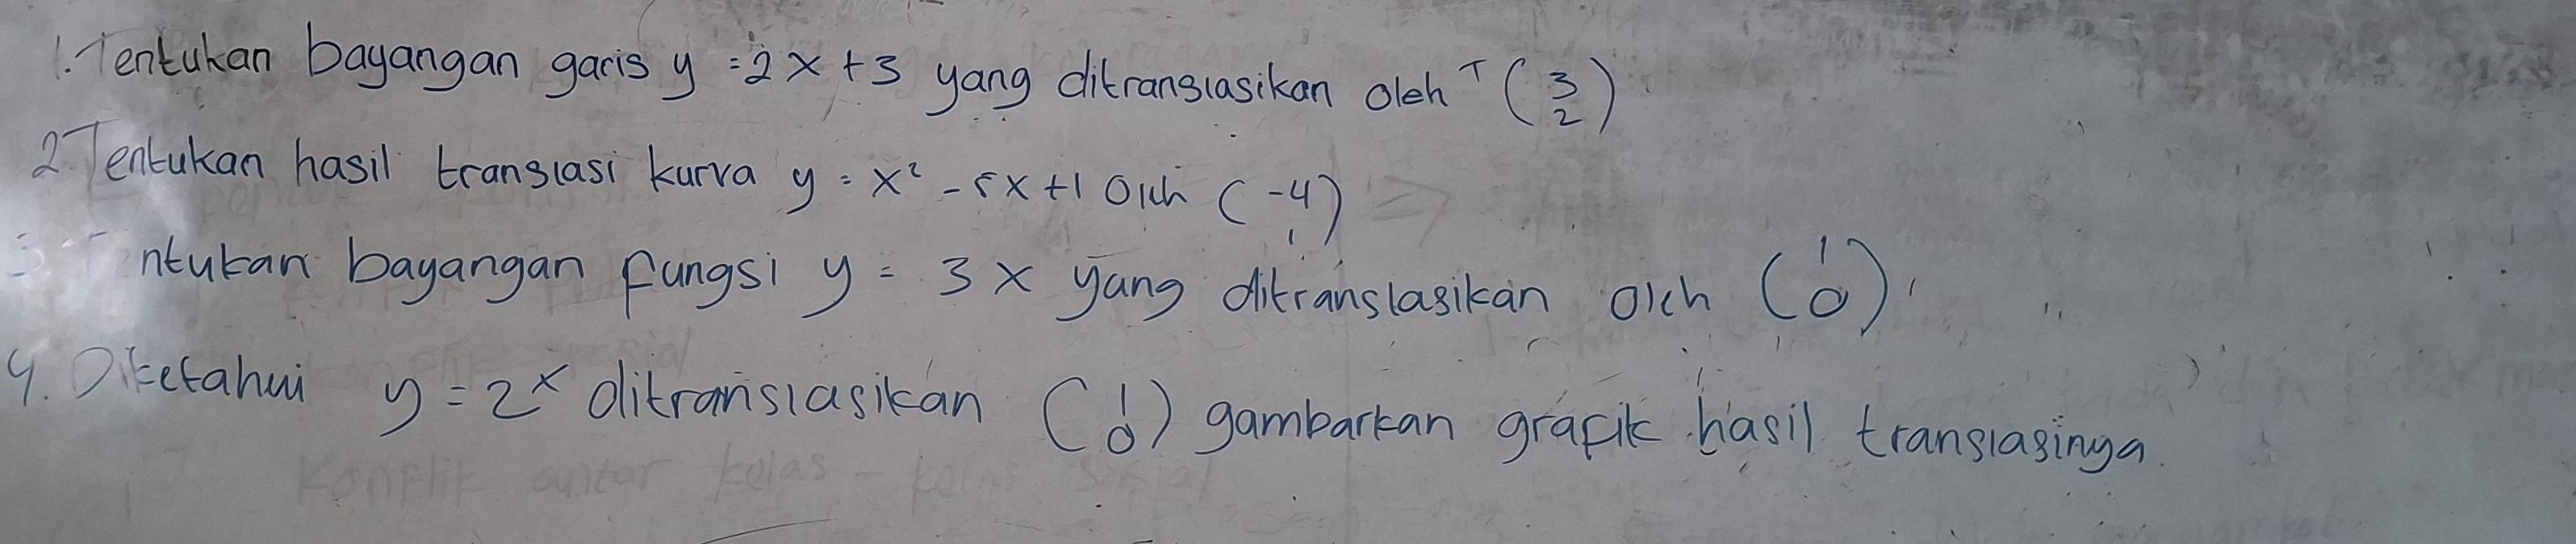 1. Tentukan bayangan garis y = 2x + 3 yang ditranslasikan oleh T (3 2)
2. Tentukan hasil translasi kurva y = x² - 5x + 1 oleh (-4 1)
3. Tentukan bayangan fungsi y = 3x yang ditranslasikan oleh (1 0)
4. Diketahui y = 2ˣ ditranslasikan (1 0) gambarkan grafik hasil translasinya.
Konflik antar kelas - kelas sosial